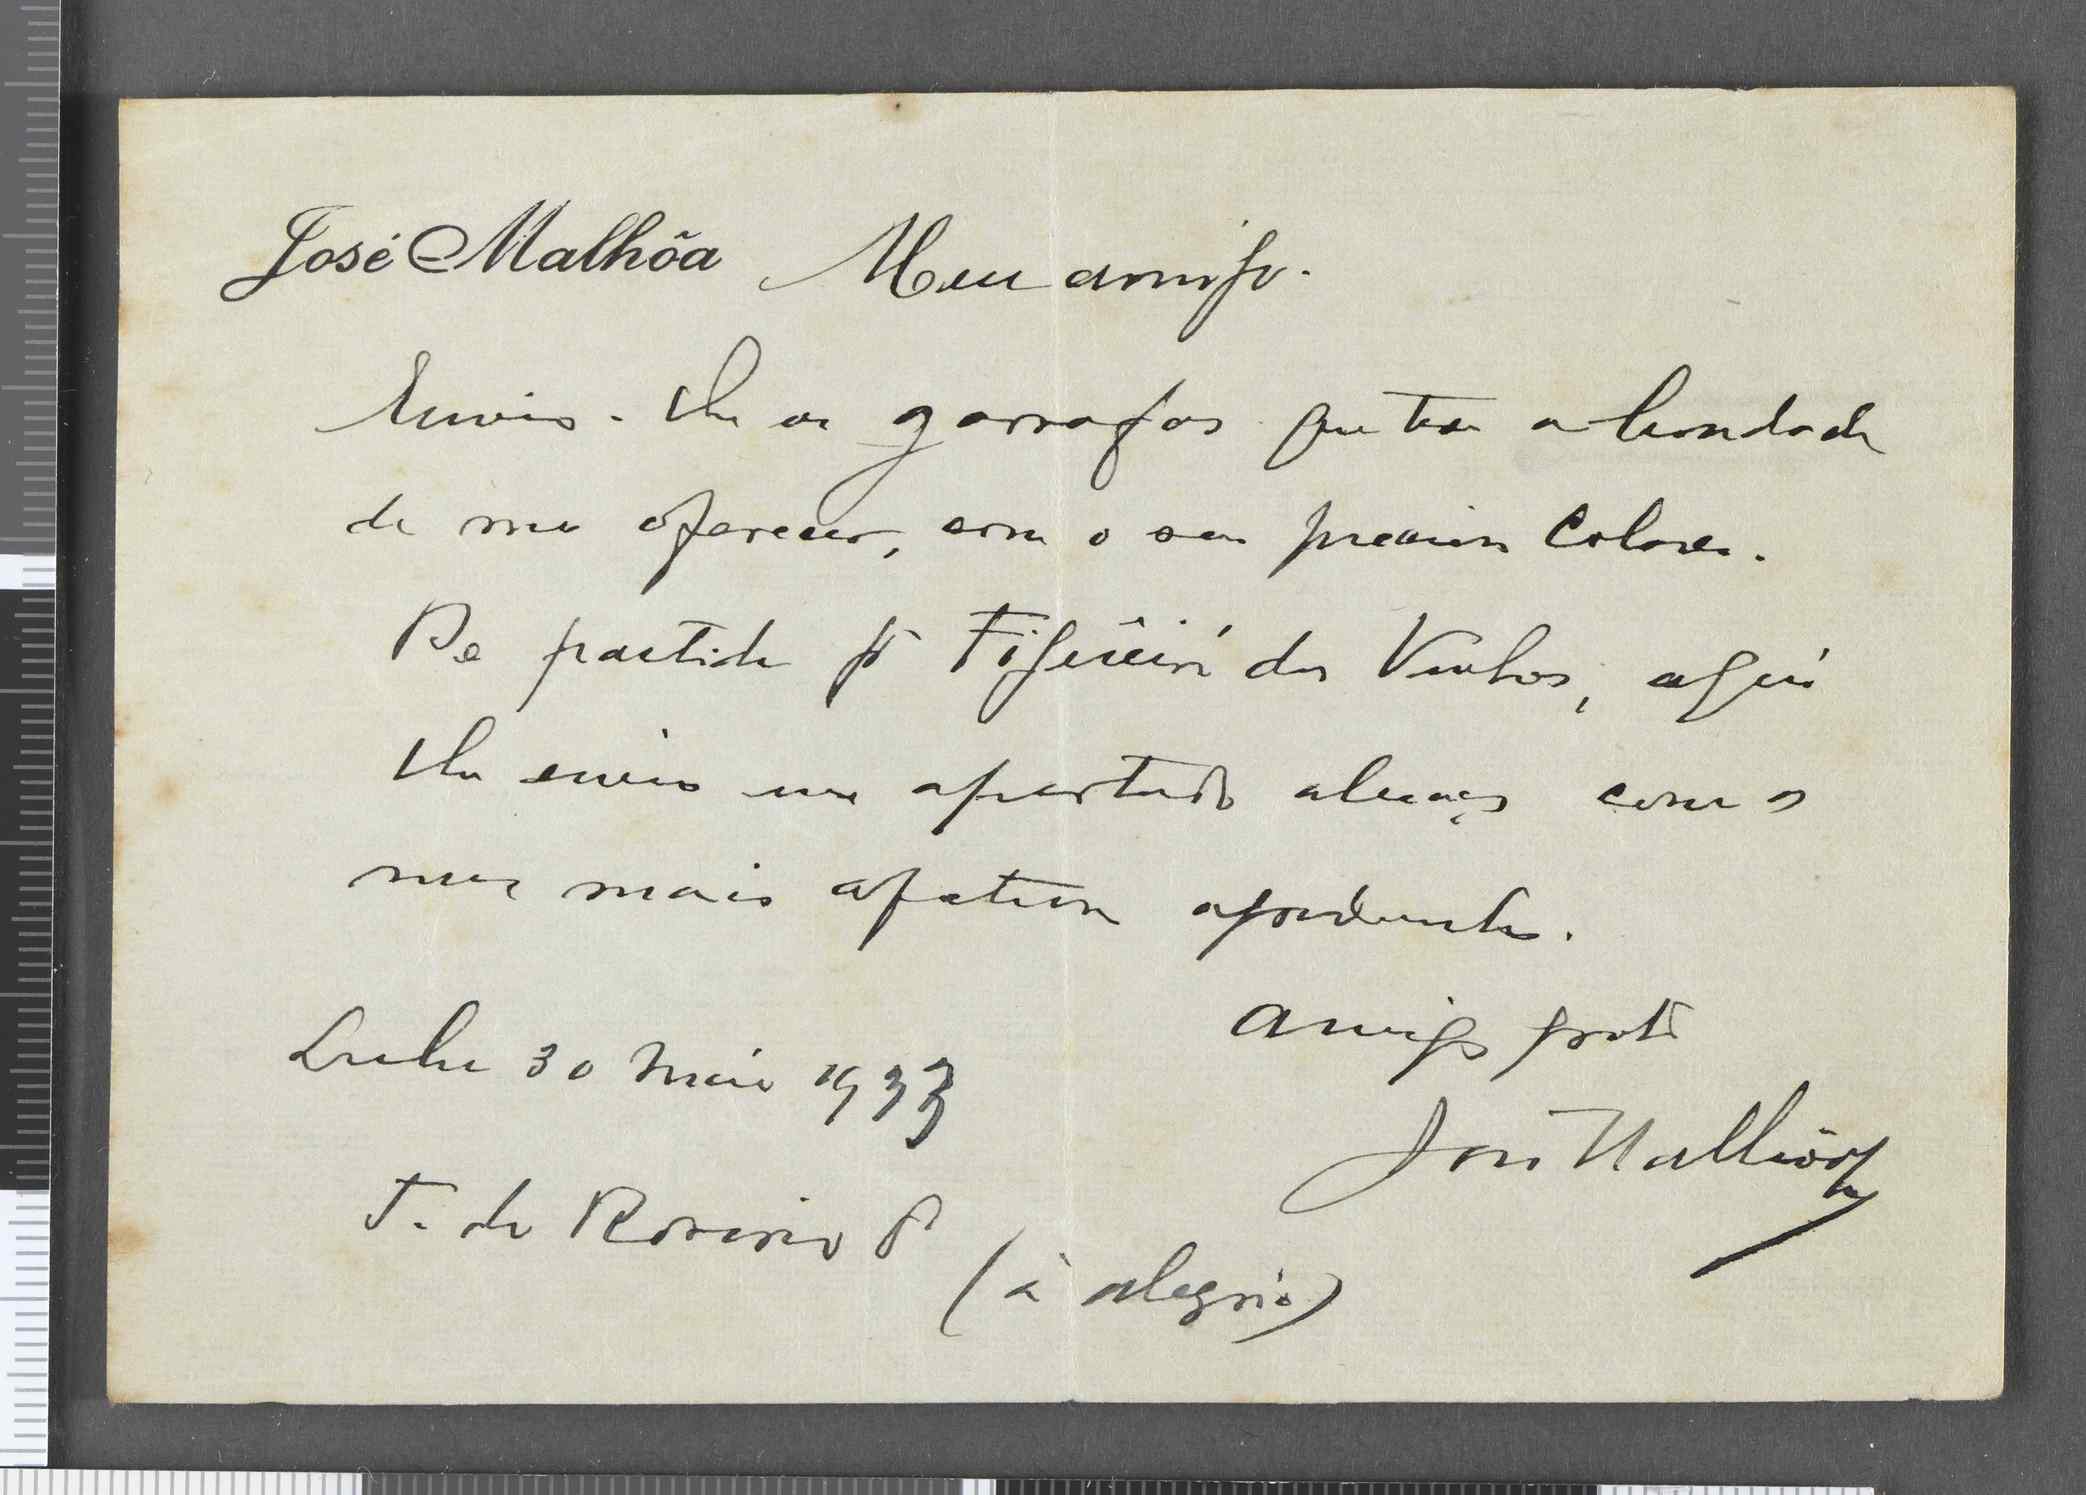 José Malhôa Meu amigo.
Envio-lhe as garrafas que tem a bondade
de me oferecer, com o seu precioso Colares.
De partida pª Figueiró dos Vinhos, aqui
lhe envio um apertado abraço com o
meu mais afetuoso agradecimento.
Amigo grato
Lisboa 30 Maio 1933
José Malhôa
T. do Rosario 8
(à alegria)